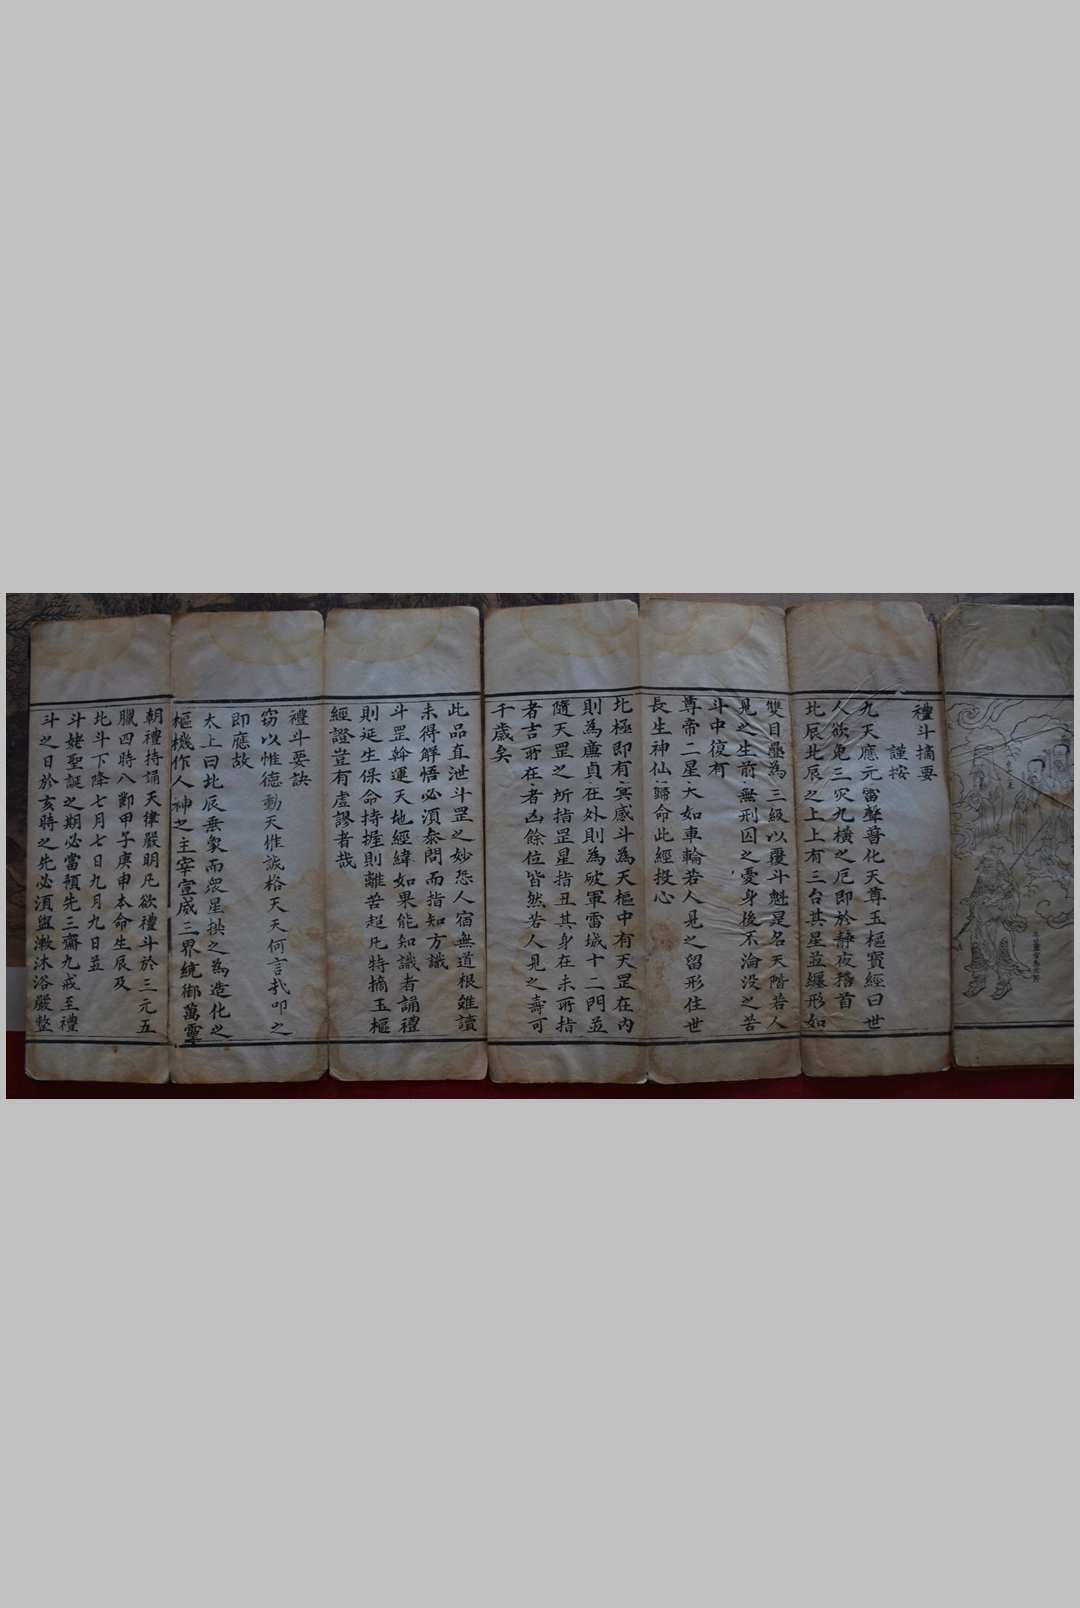 禮斗摘要
謹按
九天應元雷聲普化天尊玉樞寶經曰世
人欲免三灾九橫之厄即於靜夜稽首
北辰北辰之上上有三台其星並纏形如
雙目疊為三級以覆斗魁是名天階若人
見之生前無刑囚之憂身後不淪没之苦
斗中復有
尊帝二星大如車輪若人見之留形住世
長生神仙歸命此經投心
北極即有冥感斗為天樞中有天罡在内
則為廉貞在外則為破軍雷城十二門並
隨天罡之所指罡星指丑其身在未所指
者吉所在者凶餘位皆然若人見之壽可
千歲矣
此品直泄斗罡之妙恐人宿無道根雖讀
未得解悟必須叅問而指知方識
斗罡斡運天地經緯如果能知識者誦禮
則延生保命持握則離苦超凡特摘玉樞
經證豈有虛謬者哉
禮斗要訣
窃以惟德動天惟誠格天天何言哉叩之
即應故
太上曰北辰垂象而衆星拱之為造化之
樞機作人神之主宰宣威三界統御萬靈
朝禮持誦天律嚴明凡欲禮斗於三元五
臘四時八節甲子庚申本命生辰及
北斗下降七月七日九月九日並
斗姥聖誕之期必當預先三齋九戒至禮
斗之日於亥時之先必須盥漱沐浴嚴整